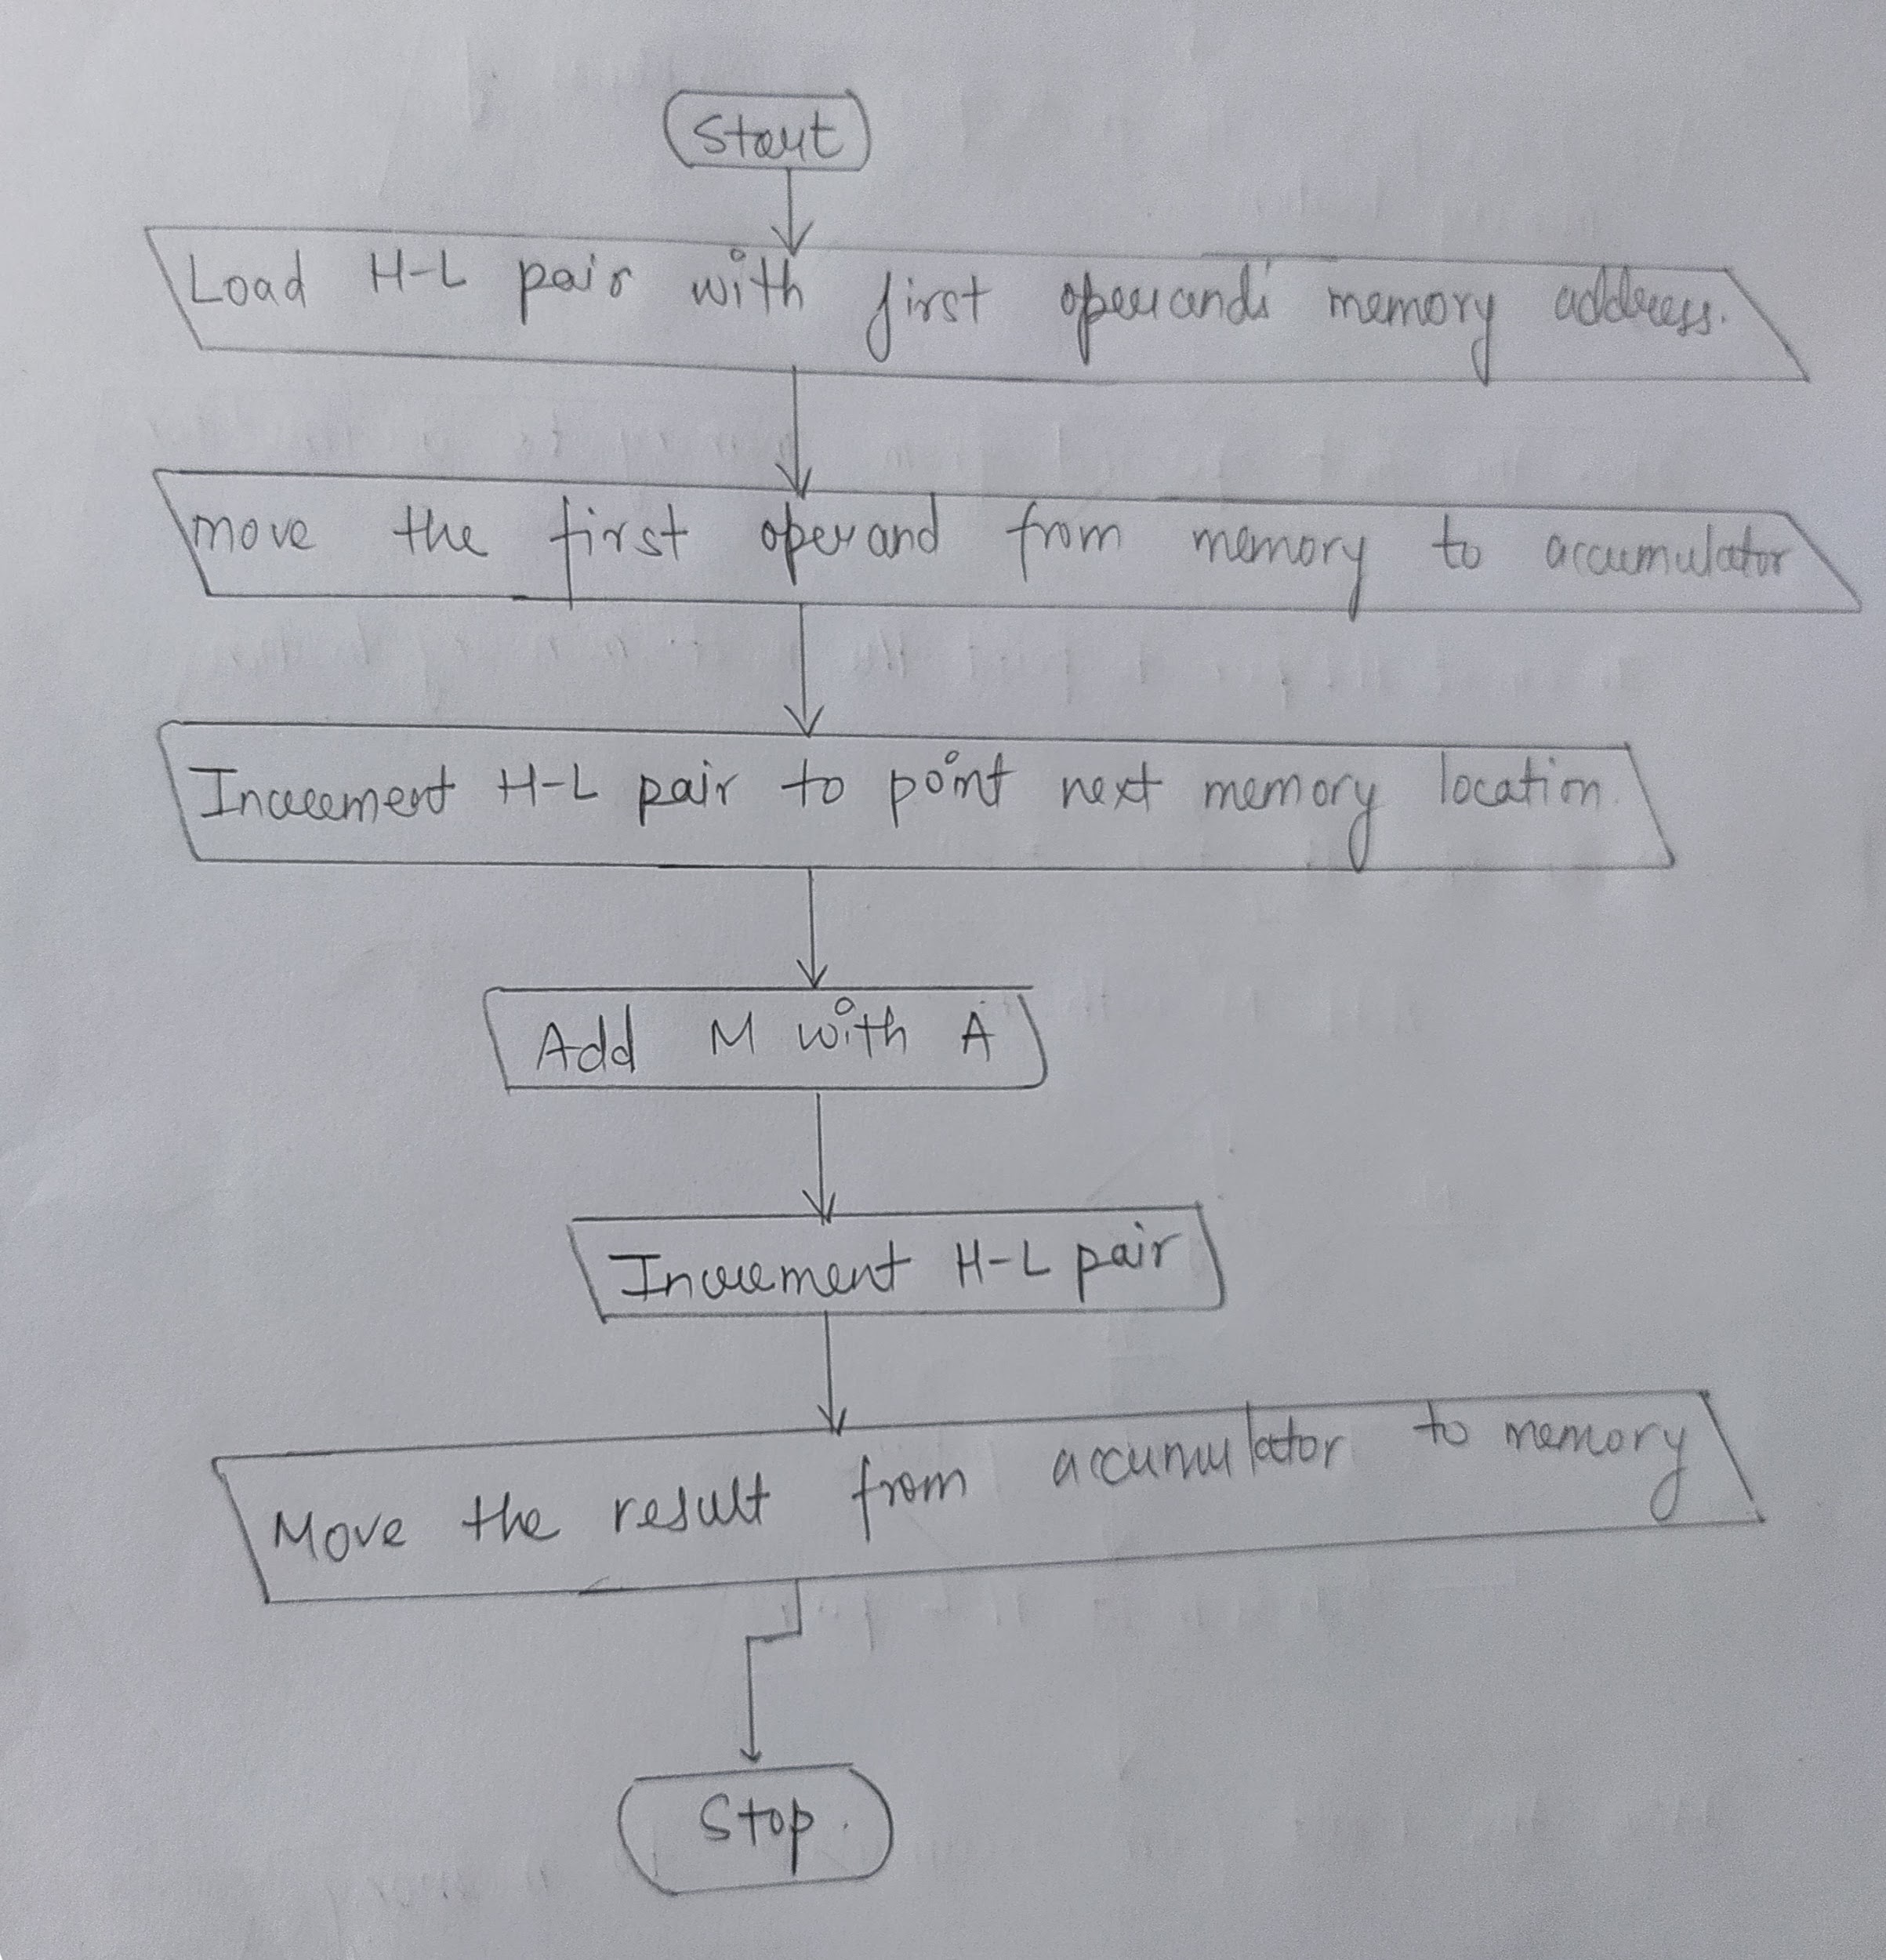 Start
Load H-L pair with first operand's memory address.
move the first operand from memory to accumulator
Increment H-L pair to point next memory location.
Add M with A
Increment H-L pair
Move the result from accumulator to memory
Stop.